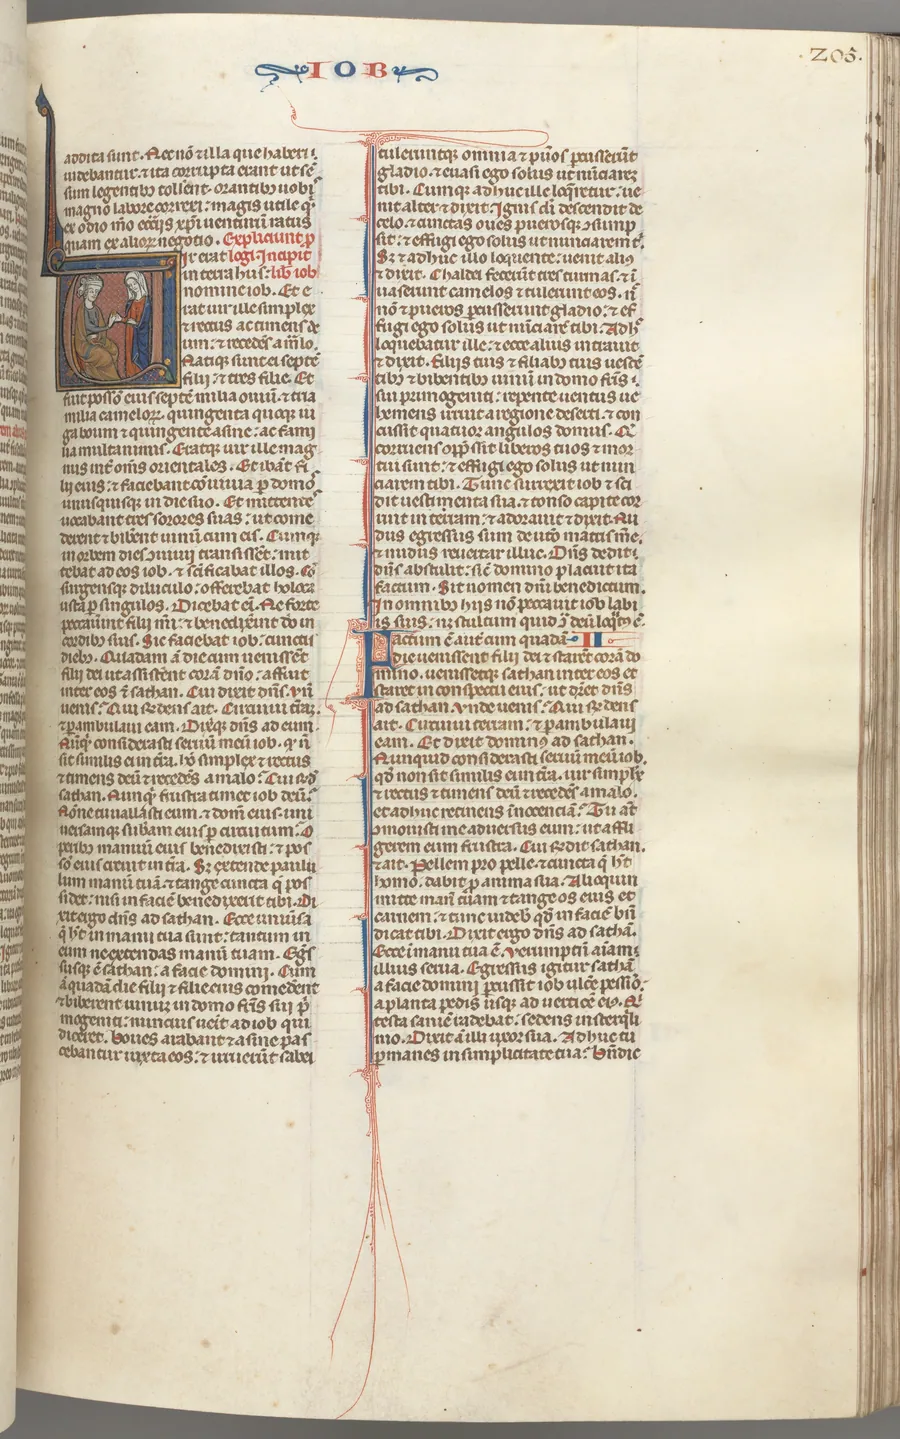 IOB
·205·
addita sunt. Nec nō & illa que haberi
uidebantur: & ita corrupta erant ut sē
sum legentibꝰ tollerēt. orantibꝰ uobis
magno labore correxi: magis utile q̄
ex odio m̄o ecc̄ijs xp̄i uenturū ratus
quam ex alioꝝ negotio. Expliciunt p
logi. Incipit lib̄ iob
Uir erat
in terra hus:
nomine iob. Et e
rat uir ille simplex
& rectus ac timens dē
um: & recedēs a malo.
Natiqꝫ sunt ei septē
filii: & tres filie. Et
fuit possō eius septē milia ouiū: & tria
milia cameloꝝ. quingenta quoqꝫ iu
ga boum & quingente asine: ac fami
lia multa nimis. Eratqꝫ uir ille mag
nus int̄ om̄s orientales. Et ibāt fi
lii eius: & faciebant cōuiuia ꝑ domos
unusquisqꝫ in die suo. Et mittentes
uocabant tres sorores suas: ut come
derent & biberēt uinū cum eis. Cumqꝫ
in orbem dies ꝯuiuii transissēt: mit
tebat ad eos iob. & sc̄ificabat illos. Cō
surgensqꝫ diluculo: offerebat holoca
usta ꝑ singulos. Dicebat eī. Ne forte
peccauerint filii m̄i: & benedixerīt do in
cordibꝰ suis. Sic faciebat iob: cunctis
diebꝰ. Quadam ā die cum uenissēt
filii dei ut assisterēt corā dn̄o: affuit
inter eos & sathan. Cui dixit dn̄s. Vn̄
uenis? Qui rn̄dens ait. Circuiui tr̄am:
& ꝑambulaui eam. Dixitqꝫ dn̄s ad eum.
Nūqͥd considerasti seruū meū iob. qꝫ n̄
sit similis ei in tr̄a. hō simplex & rectus
& timens deū & recedēs a malo? Cui rn̄dꝫ
sathan. Nunqͥd frustra timet iob deū?
Nōne tu uallasti eum. & domū eius. uni
uersamqꝫ suƀam eius ꝑ circuitum? O
peribꝰ manuū eius benedixisti: & pos
sō eius creuit in tr̄a. Sꝫ extende paulu
lum manū tuā: & tange cuncta q̄ pos
sidet: nisi in faciē benedixerit tibi. Di
xit ergo dn̄s ad sathan. Ecce uniūsa
q̄ hꝫt in manu tua sunt: tantum in
eum ne extendas manū tuam. Egr̄s
susqꝫ ē sathan: a facie domini. Cum
ā quadā die filii & filie eius comederēt
& biberent uinum in domo fr̄is sui pͥ
mogeniti: nuncius uēit ad iob qui
diceret. Boues arabant & asine pas
cebantur iuxta eos: & irruerūt sabei
tuleruntqꝫ omnia & pūos ꝑcusserūt
gladio. & euasi ego solus ut nūciarē
tibi. Cumqꝫ adhuc ille loq̄retur: ue
nit alter & dixit. Ignis dī descendit de
celo. & tactas oues puerosqꝫ ꝯsump
sit: & effugi ego solus ut nunciarem tͥ.
Sꝫ & adhuc illo loquente: uenit aliꝰ
& dixit. Chaldei fecerūt tres turmas: & ī
uaserunt camelos & tulerunt eos. n̄
nō & pueros ꝑcusserunt gladio: & ef
fugi ego solus ut nūciarē tibi. Adhꝰ
loquebatur ille: & ecce alius intrauit
& dixit. Filiis tuis & filiabꝰ tuis uescē
tibꝰ & bibentibꝰ uinū in domo fr̄is
sui primogeniti: repente uentus ue
hemens irruit a regione deserti. & con
cussit quatuor angulos domus. Q̄
corruens opp̄ssit liberos tuos & mor
tui sunt: & effugi ego solus ut nun
ciarem tibi. Tunc surrexit iob & sci
dit uestimenta sua: & tonso capite cor
ruit in terram: & adorauit & dixit. Nu
dus egressus sum de utō matris mē.
& nudus reuertar illuc. Dn̄s dedit:
dn̄s abstulit: sic̄ domino placuit ita
factum. Sit nomen dn̄i benedictum.
In omnibꝰ hijs nō peccauit iob labi
is suis: nꝫ stultum quid ꝯ̄ deū loq̄tꝰ ē.
Factum ē aut̄ cum quadā II
die uenissent filii dei & starēt corā do
mino. uenissetqꝫ sathan inter eos et
staret in conspectu eius: ut dr̄et dn̄s
ad sathan. Vnde uenis? Qui rn̄dens
ait. Circuiui terram: & ꝑambulaui
eam. Et dixit dominꝰ ad sathan.
Nunquid considerasti seruū meū iob.
qd̄ non sit similis ei in tr̄a. uir simplex
& rectus & timens deū & recedēs a malo.
et adhuc retinens īnocenciā? Tu aūt
ꝯmouisti me aduersus eum: ut affli
gerem eum frustra. Cui rn̄dit sathan.
& ait. Pellem pro pelle: & cuncta q̄ hꝫt
homo. dabit ꝑ anima sua. Alioquin
mitte manū tuam & tange os eius et
carnem: & tunc uidebꝰ qd̄ in faciē bn̄
dicat tibi. Dixit ergo dn̄s ad sathā.
Ecce ī manu tua ē. Verumptn̄ aīam
illius serua. Egressus igitur sathā
a facie domini ꝑcussit iob ulcē pessīo
a planta pedis usqꝫ ad uerticē eiꝰ. Q̄
testa saniē radebat: sedens in sterqͥli
nio. Dixit ā illi uxor sua. Adhuc tu
ꝑmanes in simplicitate tua? Bn̄dic